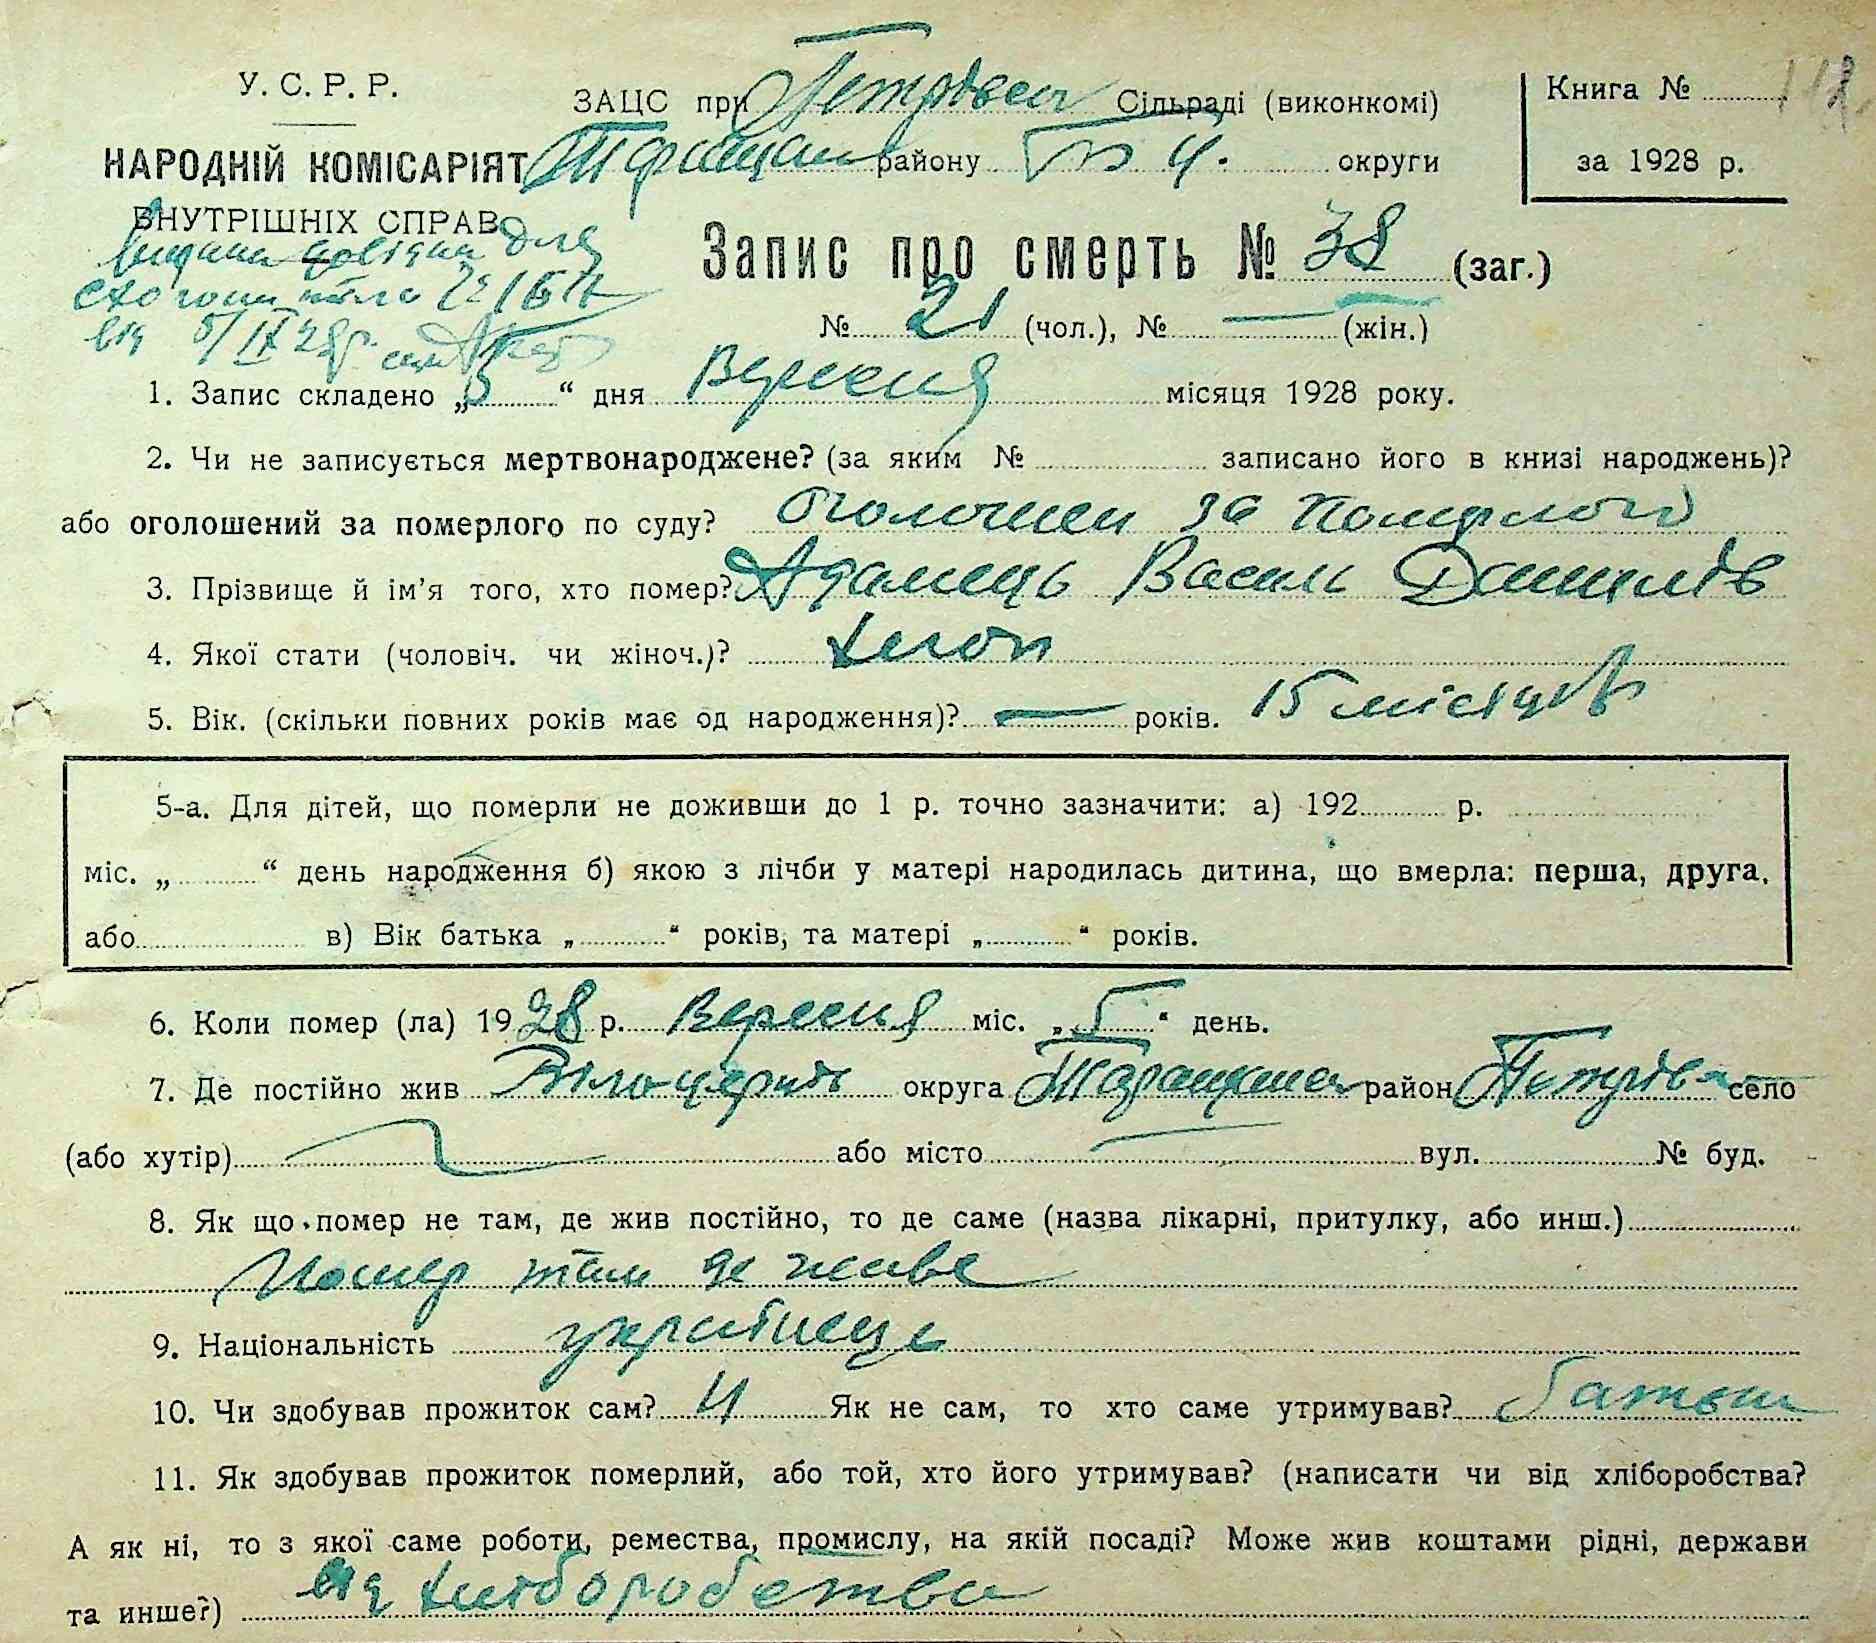 У. С. Р. Р.
НАРОДНІЙ КОМІСАРІЯТ
ВНУТРІШНІХ СПРАВ
ЗАЦС при Петрівськ Сільраді (виконкомі)
Таращан району Б Ц. округи
Книга №
за 1928 р.
для
тіла
від 5/IX 28р.
Запис про смерть № 38 (заг.)
№ 21 (чол.), № — (жін.)
1. Запис складено „5“ дня Вересня місяця 1928 року.
2. Чи не записується мертвонароджене? (за яким № записано його в книзі народжень)?
або оголошений за померлого по суду? оголошен за померлого
3. Прізвище й ім’я того, хто помер? Адамець Василь Данилів
4. Якої стати (чоловіч. чи жіноч.)? хлоп
5. Вік. (скільки повних років має од народження)? — років. 15 місяців
5-а. Для дітей, що померли не доживши до 1 р. точно зазначити: а) 192 р.
міс. „ “ день народження б) якою з лічби у матері народилась дитина, що вмерла: перша, друга,
або в) Вік батька „ “ років, та матері „ “ років.
6. Коли помер (ла) 1928 р. Вересня міс. „5“ день.
7. Де постійно жив Білоцерків округа Таращанс район Петрівка село
(або хутір) або місто — вул. № буд.
8. Як що помер не там, де жив постійно, то де саме (назва лікарні, притулку, або инш.)
Помер там де живе
9. Національність українець
10. Чи здобував прожиток сам? Ні Як не сам, то хто саме утримував? батьки
11. Як здобував прожиток померлий, або той, хто його утримував? (написати чи від хліборобства?
А як ні, то з якої саме роботи, ремества, промислу, на якій посаді? Може жив коштами рідні, держави
та инше?) від хліборобства